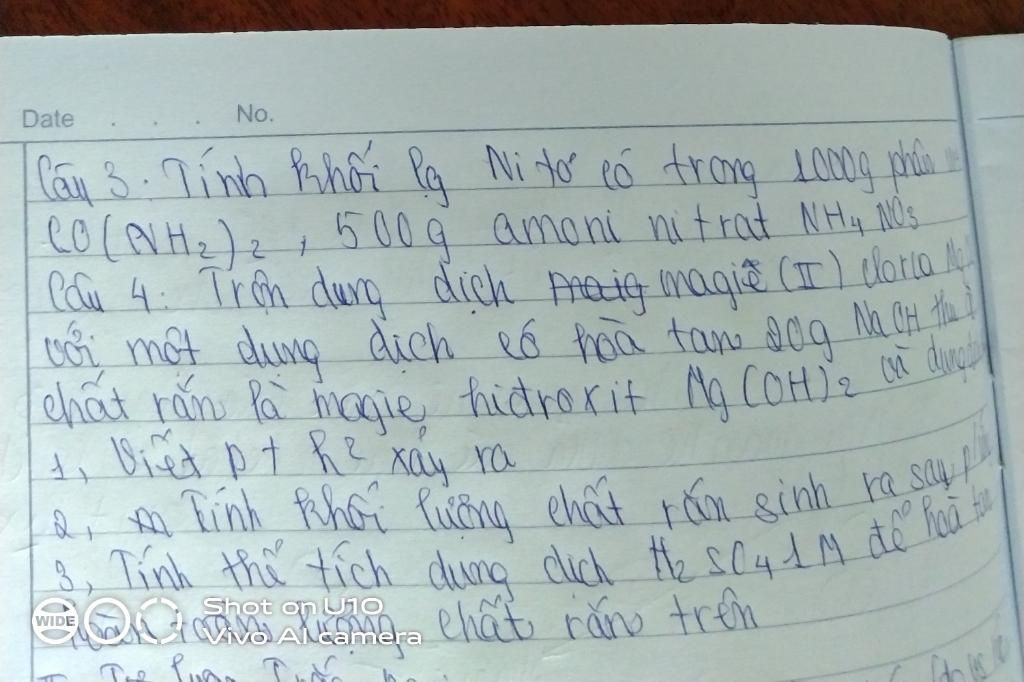 Date . . . No.
Câu 3. Tính khối lg Nitơ có trong 1000g phân
CO(NH2)2, 500g amoni nitrat NH4NO3
Câu 4. Trộn dung dịch magiê (II) clorua
với một dung dịch có hoà tan 20g NaOH thu
chất rắn là magie hidroxit Mg(OH)2 và dung
1, Viết pt h² xảy ra
2, Tính khối lượng chất rắn sinh ra sau
3, Tính thể tích dung dịch H2SO4 1M để hoà tan
lượng chất rắn trên
WIDE
Shot on U10
Vivo AI camera